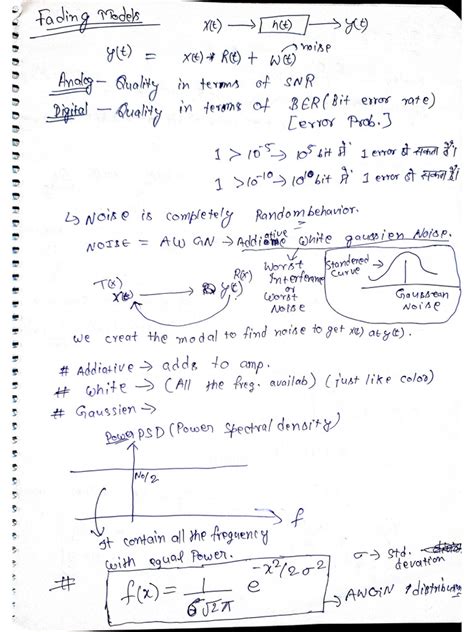 Fading Models x(t) → h(t) → y(t)
y(t) = x(t) * R(t) + W(t) noise
Analog - Quality in terms of SNR
Digital - Quality in terms of BER (Bit error rate)
[error Prob.]
1 > 10^-5 → 10^5 bit में 1 error हो सकता है।
1 > 10^-10 → 10^10 bit में 1 error हो सकता है।
↳ Noise is completely Random behavior.
NOISE = AWGN → Addiative White gaussien Noise.
Worst Interference or Worst Noise
Standered Curve
Gaussean Noise
T(x) R(x)
x(t) → y(t)
we creat the modal to find noise to get x(t) at y(t).
# Addiative → adds to amp.
# White → (All the freq. availab) (just like color)
# Gaussien →
Power PSD (Power Spectral density)
No/2
f
It contain all the frequency
with equal Power.
σ → Std. devation
# f(x) = 1/σ√2π e^-x²/2σ²
→ AWGN distribut